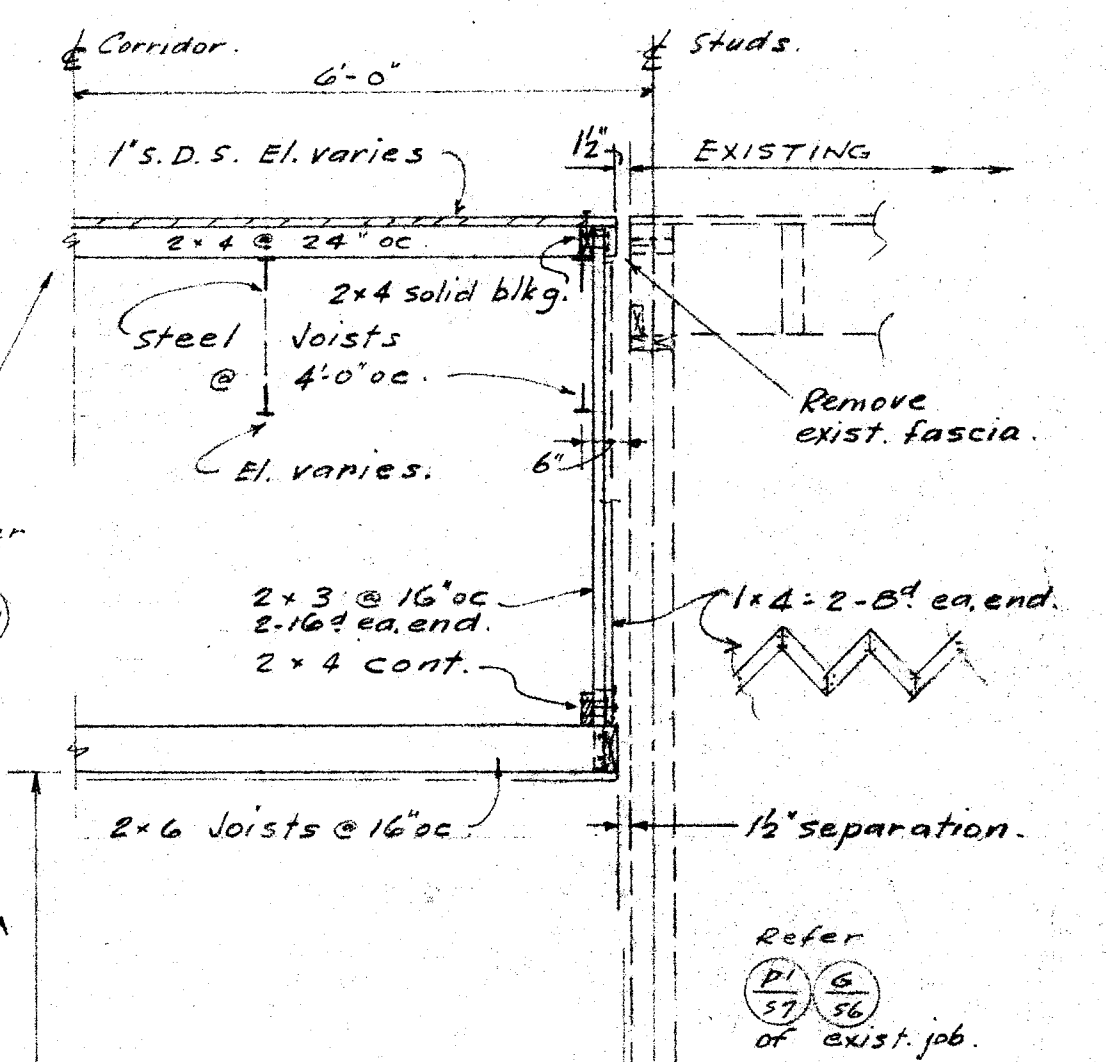 ℄ Corridor.
℄ Studs.
6'-0"
1" S.D.S. El. varies
1½"
EXISTING
2x4 @ 24" oc
2x4 solid blkg.
Steel Joists
@ 4'-0" oc.
Remove
exist. fascia.
El. varies.
6"
2x3 @ 16" oc
2-16d ea. end.
2x4 cont.
1x4 = 2-8d ea. end.
2x6 Joists @ 16" oc
1½" separation.
Refer
D1 G
S7 S6
of exist. job.